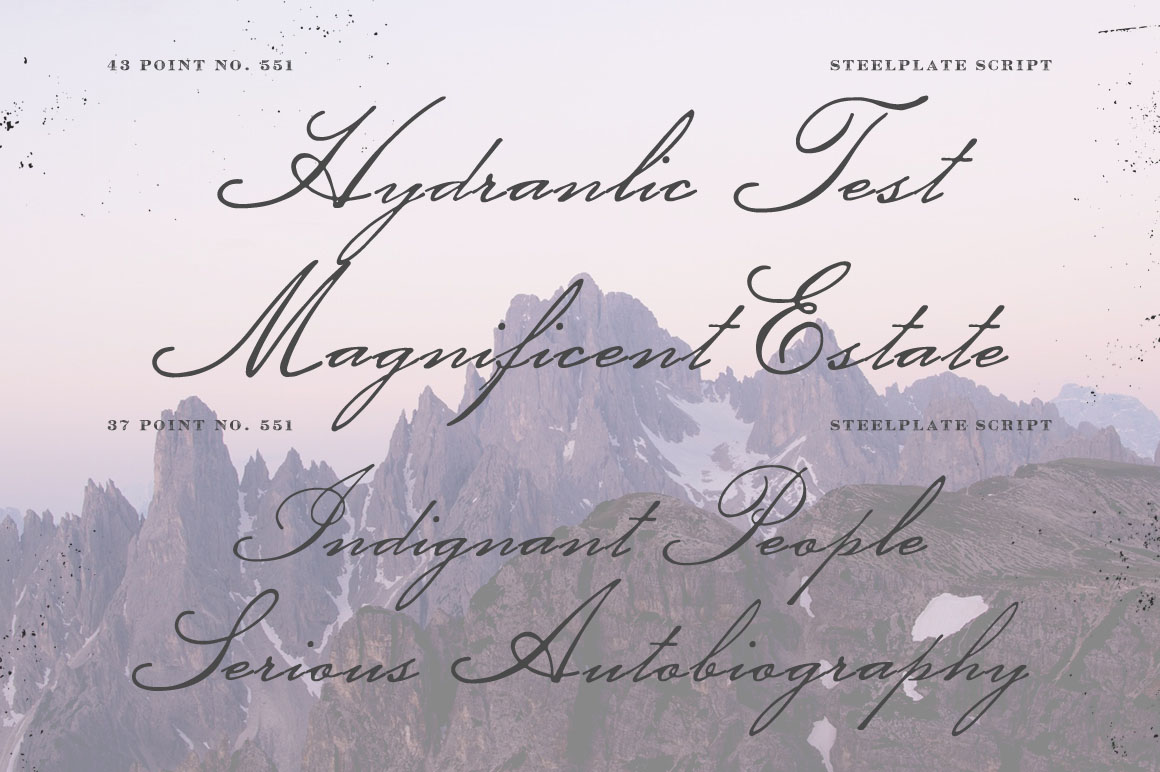 43 POINT NO. 551 STEELPLATE SCRIPT
Hydranlic Test
Magnificent Estate
37 POINT NO. 551 STEELPLATE SCRIPT
Indignant People
Serious Autobiography